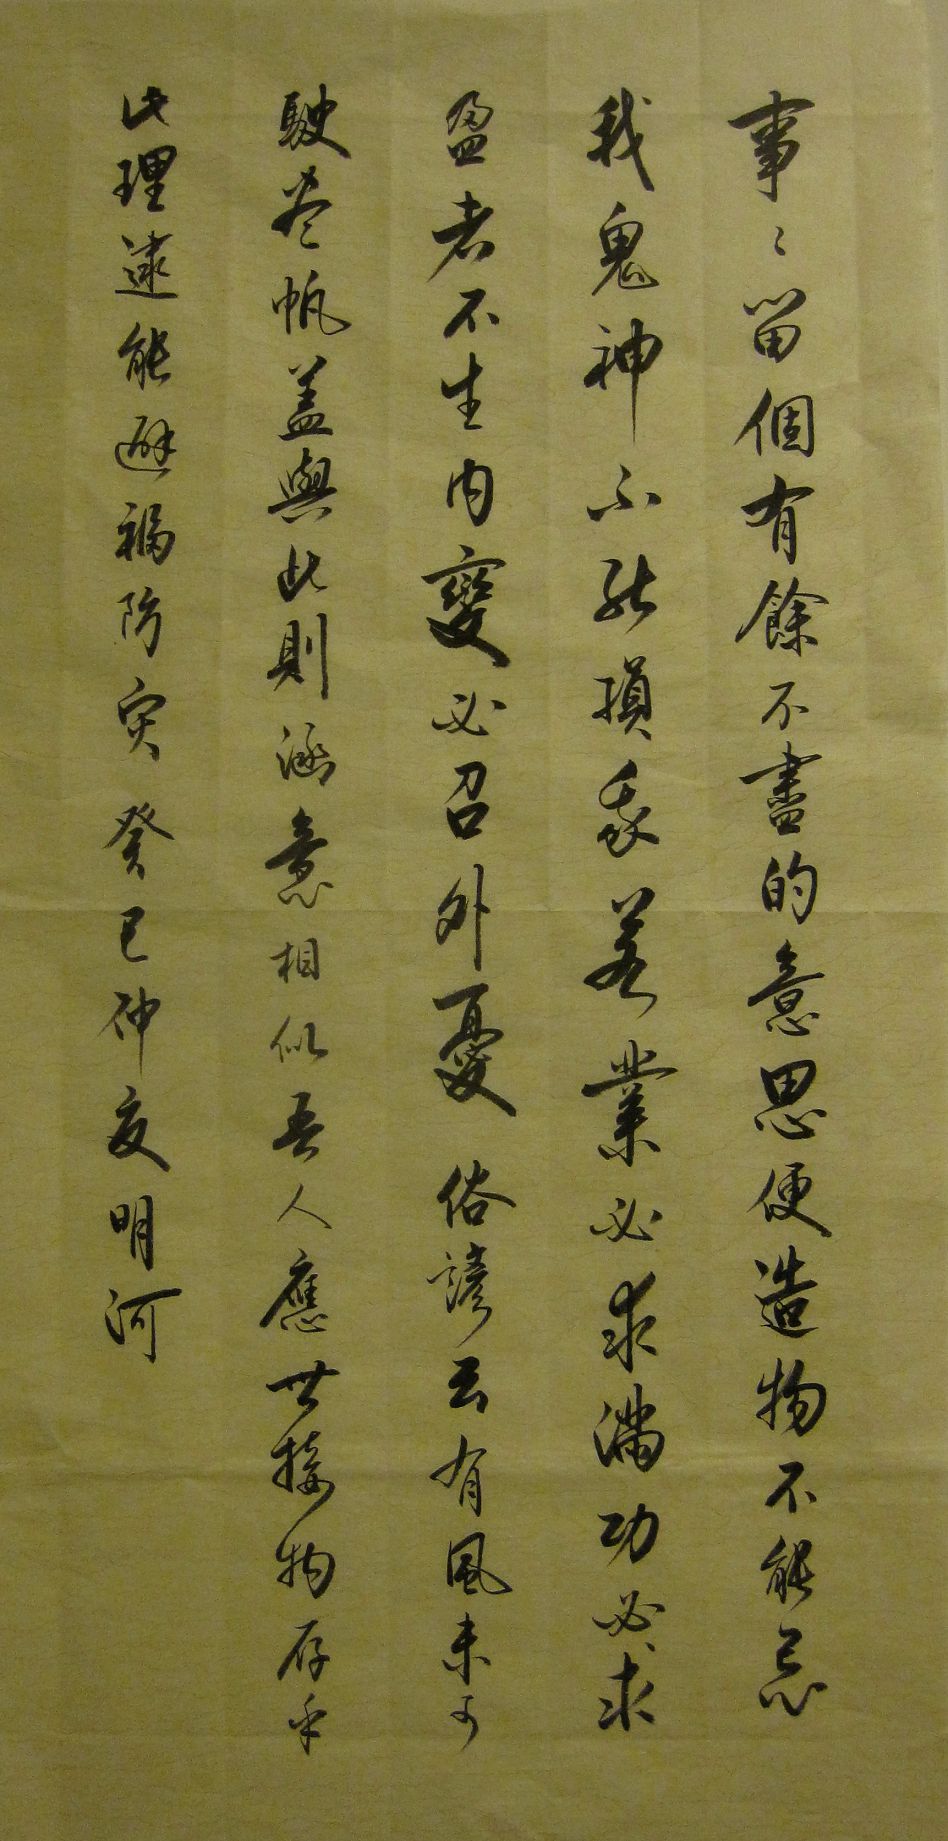 事〻留個有餘不盡的意思便造物不能忌
我鬼神不能損我若業必求滿功必求
盈者不生內變必召外憂俗諺云有風未可
駛盡帆蓋與此則涵意相似吾人應世接物存乎
此理逮能避禍防灾癸巳仲夏明河